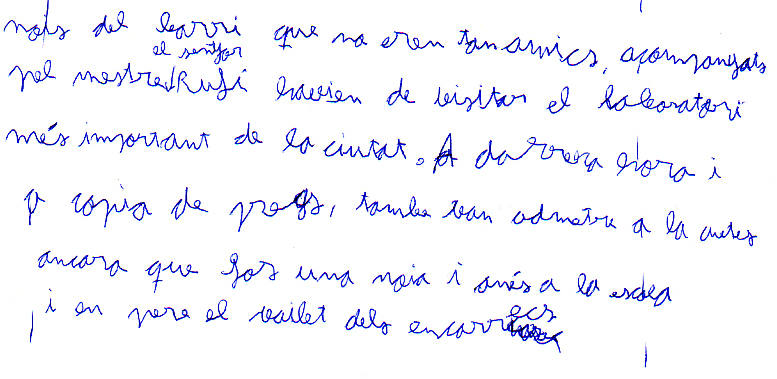 nois del barri que no eren tan amics, acompanyats
el senyor
pel mestre Rufí havien de visitar el laboratori
més important de la ciutat. A darrera hora i
a copia de precs, tambe van admetre a la
ancara que fos una noia i anés a la escola
i en pere el vailet dels encarrecs